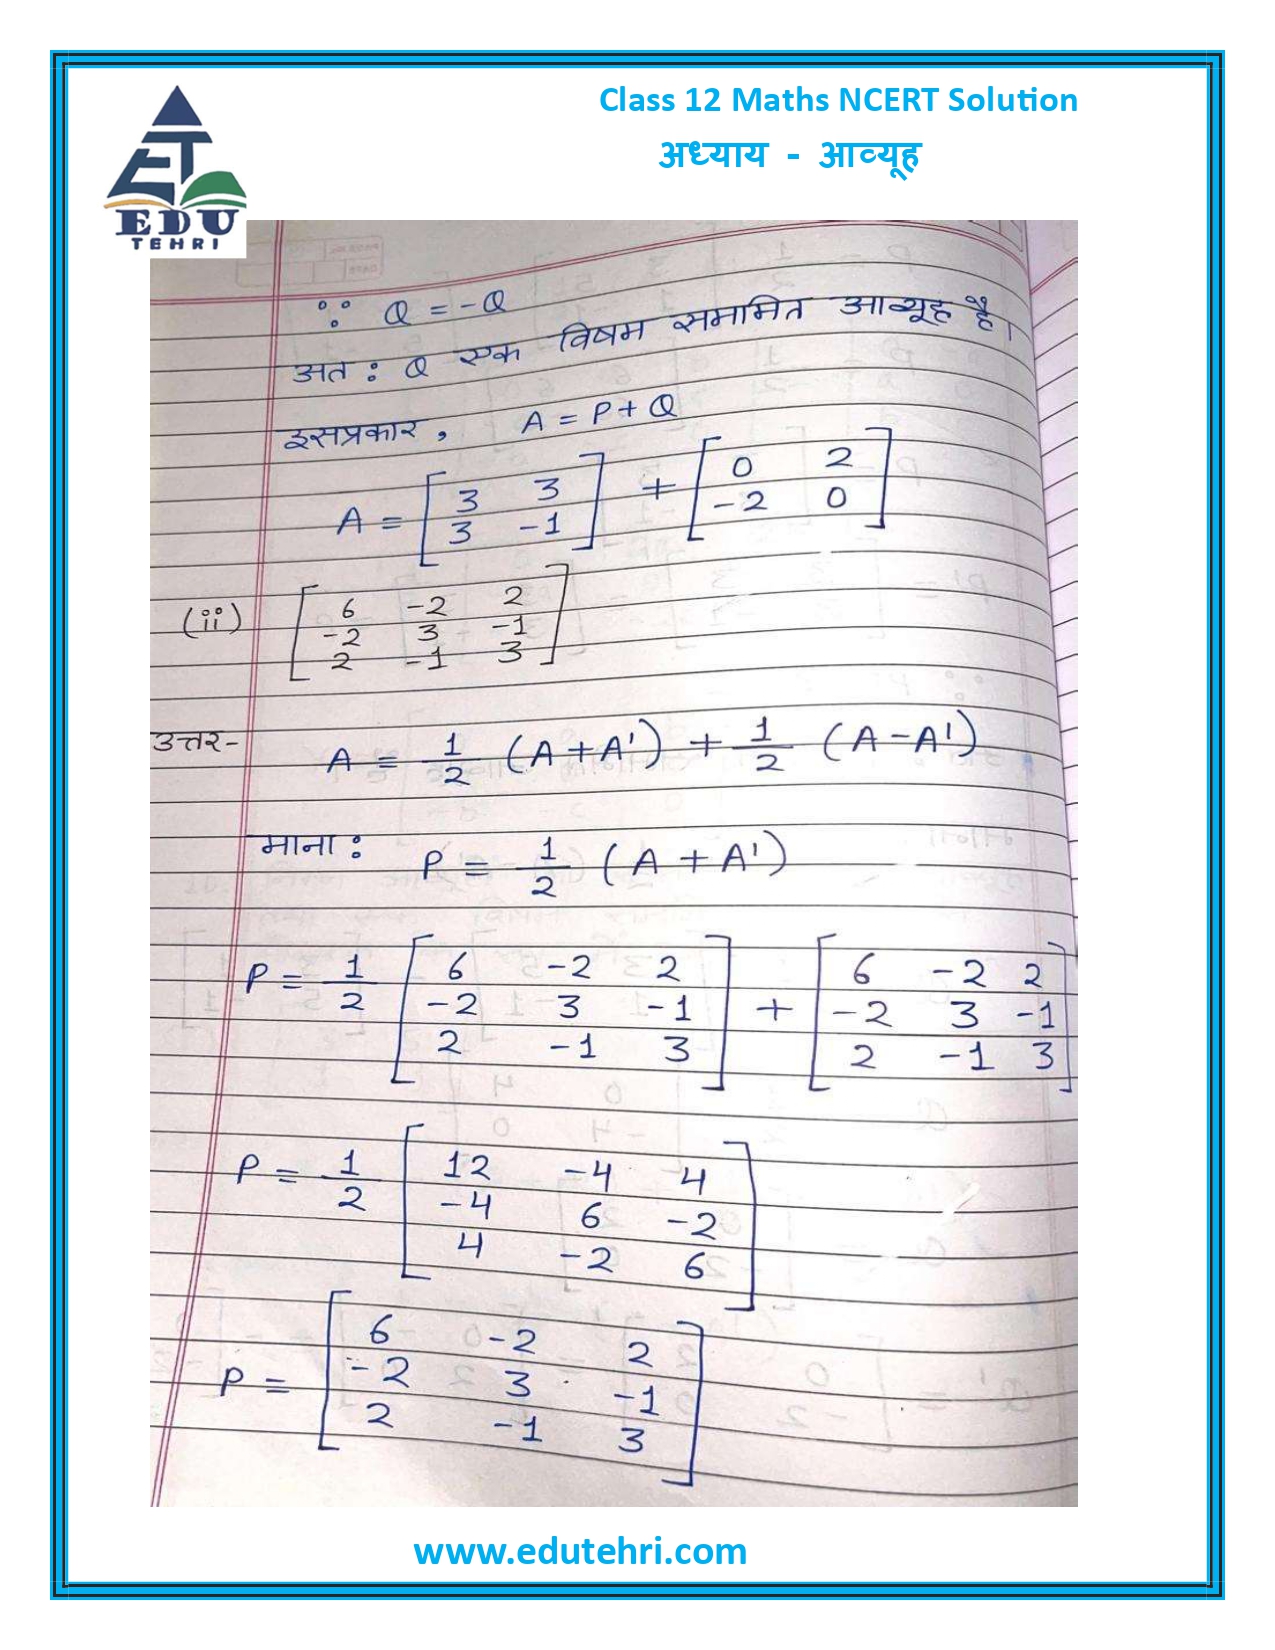 Class 12 Maths NCERT Solution
अध्याय - आव्यूह
EDU
TEHRI
∵ Q = -Q
अत: Q एक विषम सममित आव्यूह है।
इसप्रकार, A = P + Q
A = [3 3
3 -1] + [0 2
-2 0]
(ii) [6 -2 2
-2 3 -1
2 -1 3]
उत्तर- A = 1/2 (A + A') + 1/2 (A - A')
माना: P = 1/2 (A + A')
P = 1/2 [6 -2 2
-2 3 -1
2 -1 3] + [6 -2 2
-2 3 -1
2 -1 3]
P = 1/2 [12 -4 4
-4 6 -2
4 -2 6]
P = [6 -2 2
-2 3 -1
2 -1 3]
www.edutehri.com